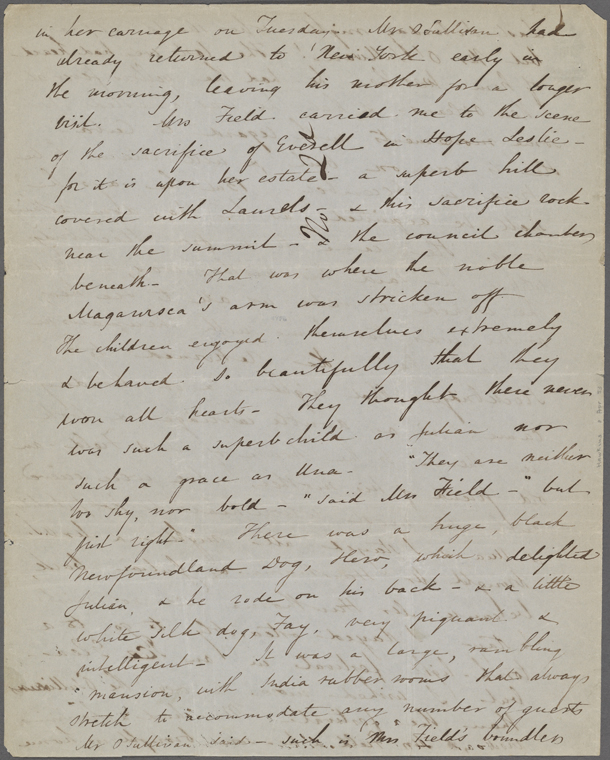 in her carriage on Tuesday. Mr O'Sullivan had
already returned to New York early in
the morning, leaving his mother for a longer
visit. Mrs Field carried me to the scene
of the sacrifice of Everell in Hope Leslie -
for it is upon her estate - a superb hill
covered with Laurels - & this sacrifice rock
near the summit - & the council chamber
beneath - That was where the noble
Magawisca's arm was stricken off
The children enjoyed themselves extremely
& behaved so beautifully that they
won all hearts - They thought there never
was such a superb child as Julian nor
such a grace as Una - "They are neither
too shy, nor bold - " said Mrs Field - " but
just right" There was a huge, black
Newfoundland Dog, Hero, which delighted
Julian, & he rode on his back - & a little
white silk dog, Fay, very piquant &
intelligent - It was a large, rambling
mansion, with India rubber rooms that always
stretch to accommodate any number of guests
Mr O'Sullivan said - such is Mrs Field's boundless